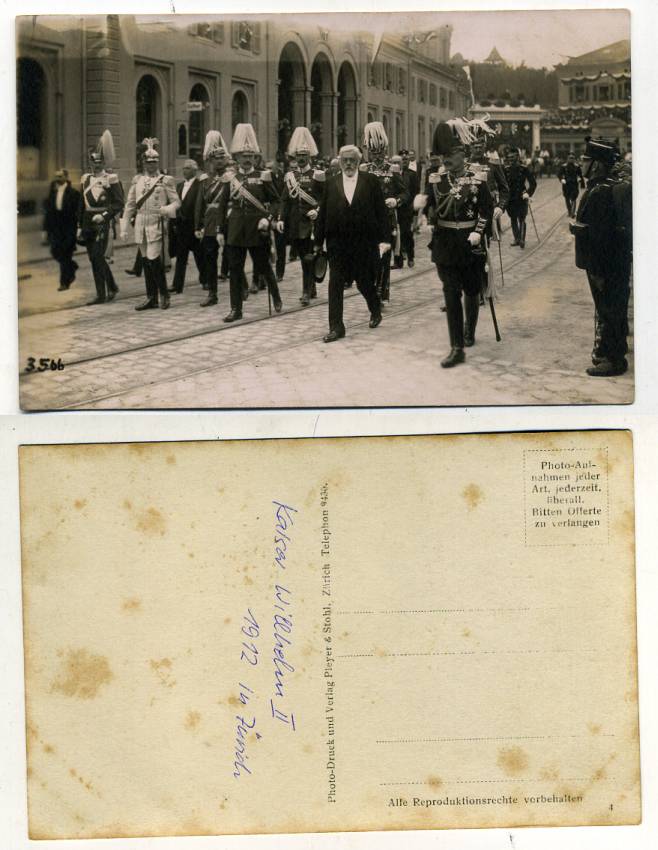 3566
Photo-Auf-
nahmen jeder
Art, jederzeit,
überall.
Bitten Offerte
zu verlangen
Kaiser Willhelm II
1912 in Zürich
Photo-Druck und Verlag Pleyer & Stohl, Zürich Telephon 9430.
Alle Reproduktionsrechte vorbehalten
4